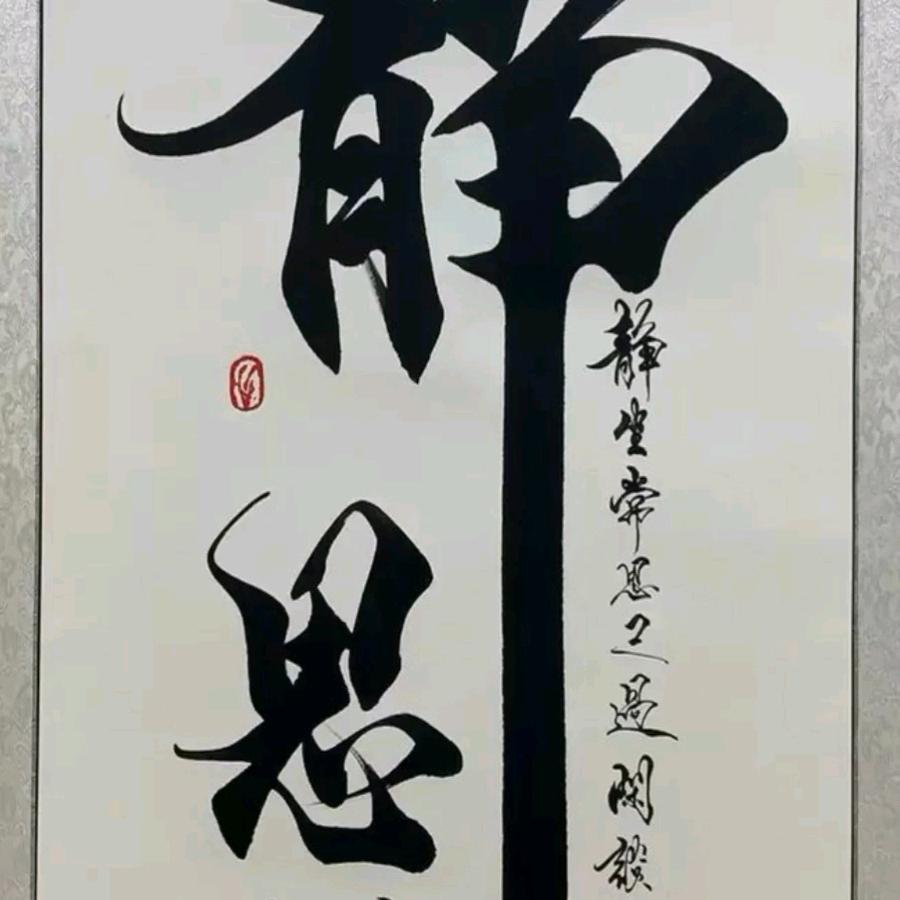 静思
静坐常思己過閑談